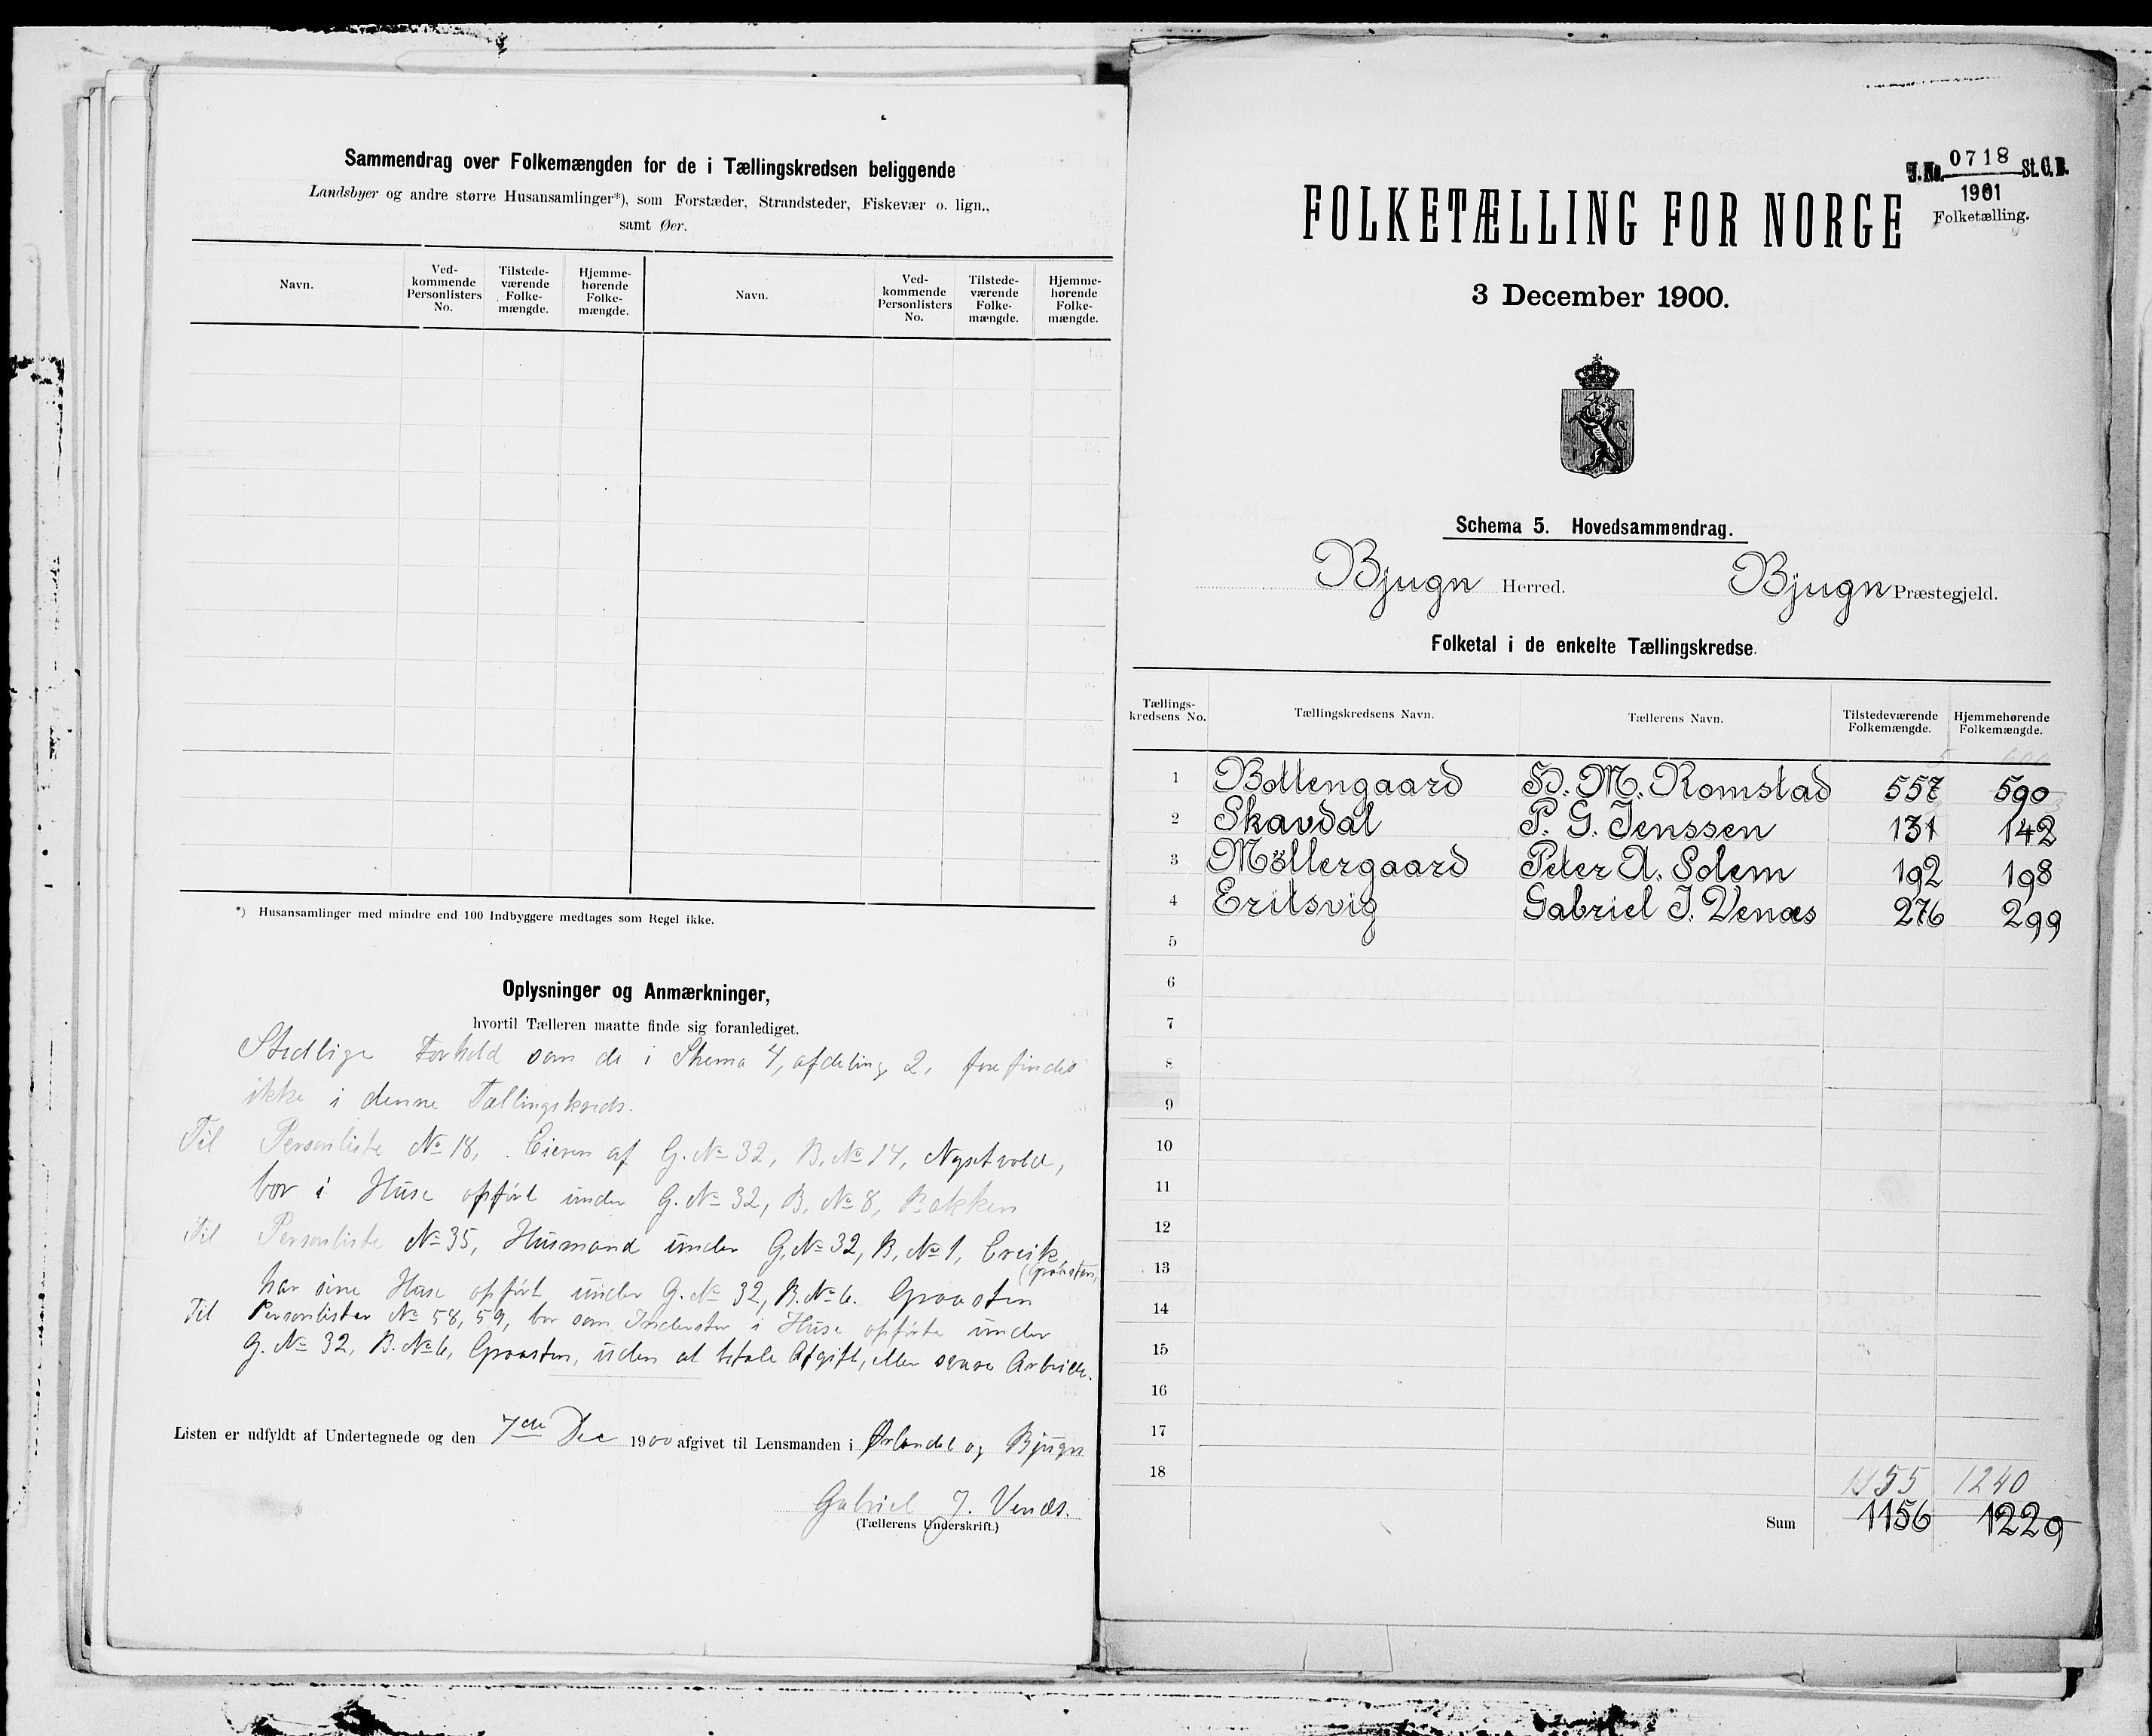 Sammendrag over Folkemængden for de i Tællingskredsen beliggende
Landsbyer og andre større Husansamlinger*), som Forstæder, Strandsteder, Fiskevær o. lign.,
samt Øer.
Navn. Ved-kommende Personlisters No. Tilstede-værende Folke-mængde. Hjemme-hørende Folke-mængde. Navn. Ved-kommende Personlisters No. Tilstede-værende Folke-mængde. Hjemme-hørende Folke-mængde.
*) Husansamlinger med mindre end 100 Indbyggere medtages som Regel ikke.
Oplysninger og Anmærkninger,
hvortil Tælleren maatte finde sig foranlediget.
Stedlige Forhold som de i Skema 4, afdeling 2, forefindes
ikke i denne Tællingskreds.
Til Personliste No 18, Eieren af G. No 32, B. No 14, Nysetvold,
bor i Huse opført under G. No 32, B. No 8, Bakken
Til Personliste No 35, Husmand under G. No 32, B. No 1, Ervik
(Graasten,
har sine Huse opført under G. No 32, B. No 6. Graasten
Til Personlister No 58, 59, bor som Inderster i Huse opførte under
G. No 32, B. No 6, Graasten, uden at betale Afgift, eller svare Arbeide.
Listen er udfyldt af Undertegnede og den 7de Dec 1900 afgivet til Lensmanden i Ørlandet og Bjugn
Gabriel J. Venæs.
(Tællerens Underskrift.)
J. No. 0718 St. C. B.
1901
Folketælling.
FOLKETÆLLING FOR NORGE
3 December 1900.
Schema 5. Hovedsammendrag.
Bjugn Herred. Bjugn Præstegjeld.
Folketal i de enkelte Tællingskredse.
Tællings-kredsens No. Tællingskredsens Navn. Tællerens Navn. Tilstedeværende Folkemængde. Hjemmehørende Folkemængde.
1 Bottengaard M. Romstad 557 590
2 Skavdal P. G. Jenssen 131 142
3 Möllergaard Peter A. Solem 192 198
4 Eritsvig Gabriel J. Venæs 276 299
5
6
7
8
9
10
11
12
13
14
15
16
17
18
1155 1240
Sum 1156 1229